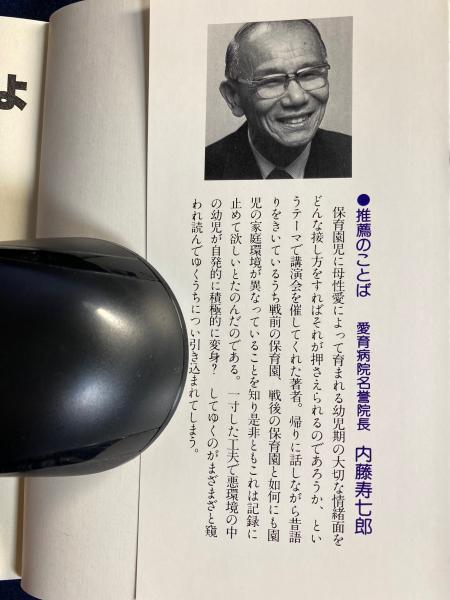 ●推薦のことば　愛育病院名誉院長　内藤寿七郎
保育園児に母性愛によって育まれる幼児期の大切な情緒面を
どんな接し方をすればそれが押さえられるのであろうか、とい
うテーマで講演会を催してくれた著者。帰りに話しながら昔語
りをきいているうち戦前の保育園、戦後の保育園と如何にも園
児の家庭環境が異なっていることを知り是非ともこれは記録に
止めて欲しいとたのんだのである。一寸した工夫で悪環境の中
の幼児が自発的に積極的に変身？　してゆくのがまざまざと窺
われ読んでゆくうちについ引き込まれてしまう。
よ